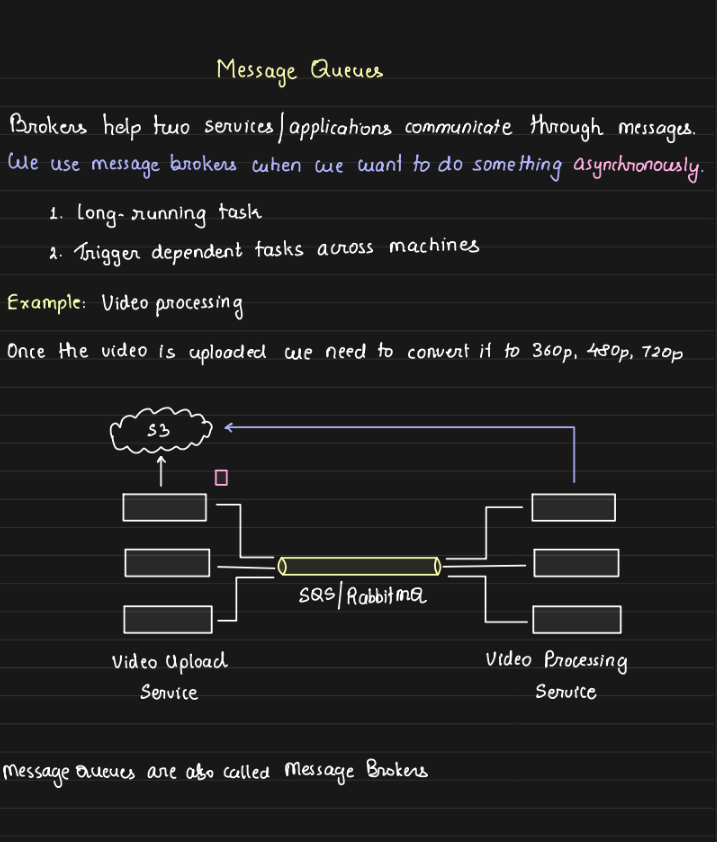 Message Queues
Brokers help two services/applications communicate through messages.
We use message brokers when we want to do something asynchronously.
1. Long-running task
2. Trigger dependent tasks across machines
Example: Video processing
Once the video is uploaded we need to convert it to 360p, 480p, 720p
S3
SQS/RabbitMQ
Video Upload Service
Video Processing Service
Message Queues are also called Message Brokers